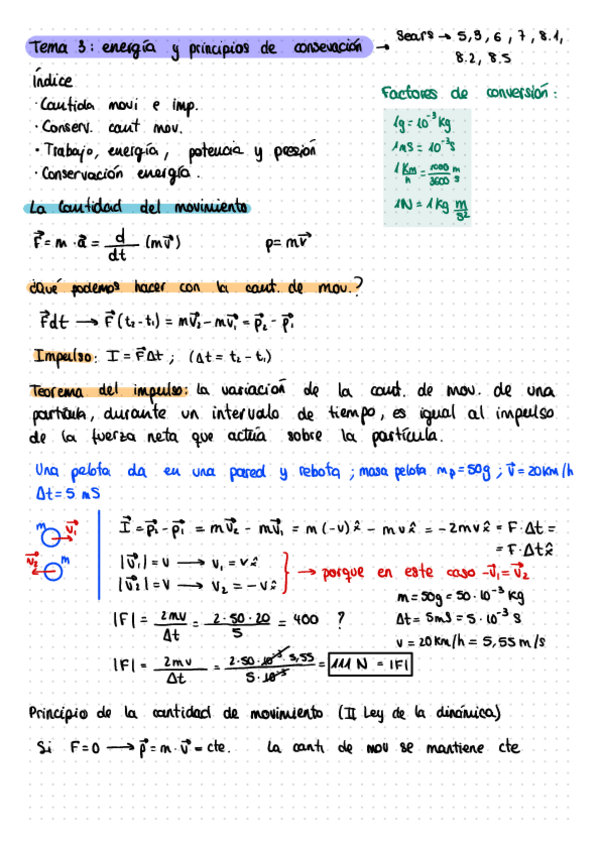 Tema 3: energía y principios de consevación → Sears → 5,9,6,7,8.1,
8.2, 8.5
Índice
· Cautida movi e imp.
· Conserv. caut mov.
· Trabajo, energía, potencia y presión
· Conservación energía.
Factores de conversión:
1g = 10⁻³ kg
1ms = 10⁻³ s
1 Km/h = 1000/3600 m/s
1N = 1 kg m/s²
La Cautidad del movimiento
F⃗ = m · a⃗ = d/dt (mv⃗) p = mv⃗
¿Qué podemos hacer con la caut. de mov.?
F⃗dt → F⃗(t₂-t₁) = mv⃗₂ - mv⃗₁ = p⃗₂ - p⃗₁
Impulso: I = F⃗Δt ; (Δt = t₂ - t₁)
Teorema del impulso: la variación de la caut. de mov. de una
partícula, durante un intervalo de tiempo, es igual al impulso
de la fuerza neta que actúa sobre la partícula.
Una pelota da en una pared y rebota ; masa pelota mp = 50g ; v⃗ = 20 km/h
Δt = 5 mS
m v⃗₁
v⃗₂ m
I⃗ = p⃗₂ - p⃗₁ = mv⃗₂ - mv⃗₁ = m(-v)x̂ - mvx̂ = -2mvx̂ = F·Δt =
= F·Δtx̂
|v⃗₁| = v → v₁ = vx̂
|v⃗₂| = v → v₂ = -vx̂
→ porque en este caso -v⃗₁ = v⃗₂
m = 50g = 50·10⁻³ kg
Δt = 5mS = 5·10⁻³ s
v = 20 km/h = 5,55 m/s
|F| = 2mv/Δt = 2·50·20/5 = 400 ?
|F| = 2mv/Δt = 2·50·10⁻³·5,55/5·10⁻³ = 111 N = |F|
Principio de la cantidad de movimiento (II Ley de la dinámica)
Si F=0 → p⃗ = m·v⃗ = cte. La canti de mov se mantiene cte